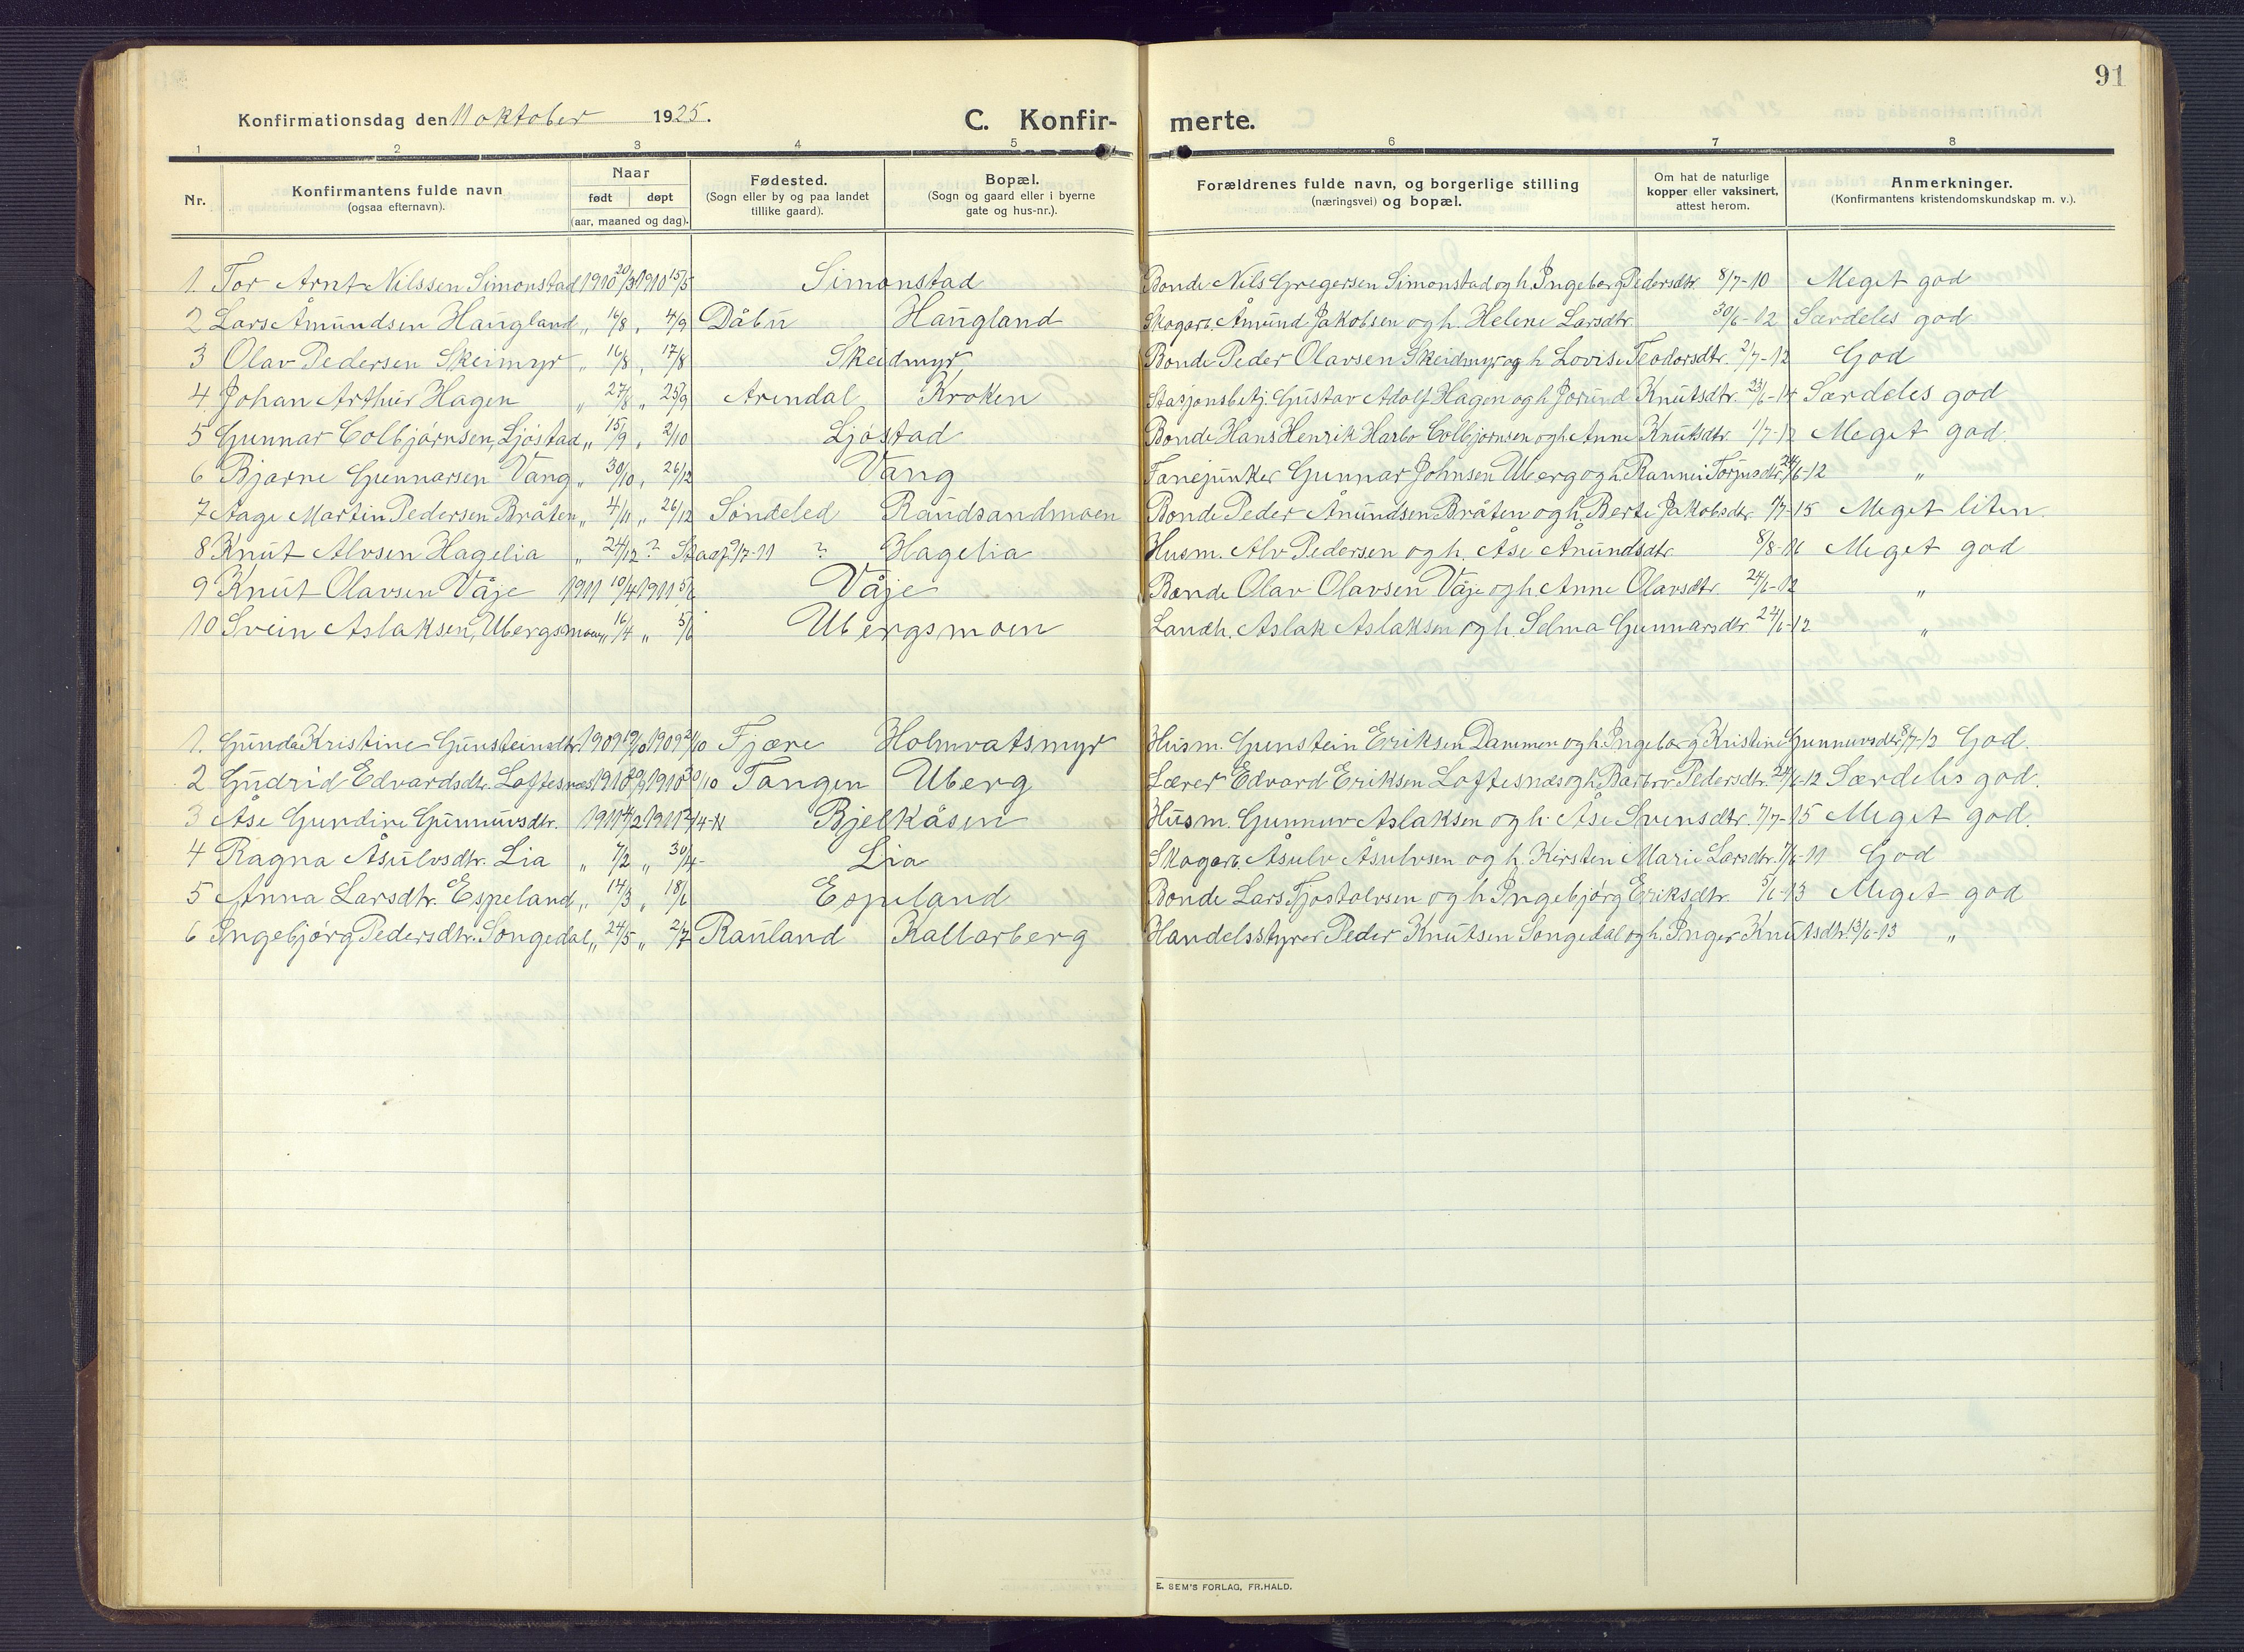 91
Konfirmationsdag den 11 oktober 1925.
C. Konfir- merte.
1 2 3 4 5 6 7 8
Nr. Konfirmantens fulde navn (ogsaa efternavn). Naar født døpt (aar, maaned og dag). Fødested. (Sogn eller by og paa landet tillike gaard). Bopæl. (Sogn og gaard eller i byerne gate og hus-nr.). Forældrenes fulde navn, og borgerlige stilling (næringsvei) og bopæl. Om hat de naturlige kopper eller vaksinert, attest herom. Anmerkninger. (Konfirmantens kristendomskundskap m. v.).
1. Tor Arnt Nilssen Simonstad 1910 20/3 1910 15/5 Simonstad Bonde Nils Gregersen Simonstad og h. Ingeborg Pedersdtr. 8/7-10 Meget god
2 Lars Åmundsen Haugland „ 16/8 „ 4/9 Dåbu Haugland Skogarb. Åmund Jakobsen og h. Helene Larsdtr. 30/6-12 Særdeles god
3 Olav Pedersen Skeimyr „ 16/8 „ 17/8 Skeidmyr Bonde Peder Olavsen Skeidmyr og h Lovise Teodorsdtr. 2/7-12 God
4. Johan Arthur Hagen „ 27/8 „ 25/9 Arendal Kroken Stasjonsbetj. Gustav Adolf Hagen og h Jorund Knutsdtr. 23/6-14 Særdeles god
5 Gunnar Colbjørnsen, Ljøstad „ 15/9 „ 2/10 Ljøstad Bonde Hans Henrik Harbo Colbjørnsen og h Anne Knutsdtr. 1/7-12 Meget god.
6 Bjarne Gunnarsen Vang „ 30/10 „ 26/12 Vang Fanejunker Gunnar Johnsen Uberg og h Rannei Torjusdtr. 24/6-12 „
7 Aage Martin Pedersen Bråten „ 4/11 „ 26/12 Søndeled Raudsandmoen Bonde Peder Ånundsen Bråten og h. Berte Jakobsdtr. 1/7-15 Meget liten.
8 Knut Alvsen Hagelia „ 24/12 ? Staaf. 9/7-11 ? Hagelia Husm. Alv Pedersen og h. Åse Anundsdtr 8/8-16 Meget god
9 Knut Olavsen Våje 1911 10/4 1911 5/6 Våje Bonde Olav Olavsen Våje og h Anne Olavsdtr. 24/6-12 „
10 Svein Aslaksen, Ubergsmoen „ 16/4 „ 5/6 Ubergsmoen Landh. Aslak Aslaksen og h. Selma Gunnarsdtr. 24/6-12 „
1. Gunda Kristine Gunsteinsdtr. 1909 1909 Fjære Holmvatsmyr Husm. Gunstein Eriksen Dammen og h. Ingeborg Kristine Gunnuvsdtr. God.
2 Gudrid Edvardsdtr. Loftesnæs 1910 1910 30/10 Tangen Uberg Lærer Edvard Eriksen Loftesnæs og h. Barbro Pedersdtr. 24/6-12 Særdeles god.
3 Åse Gundine Gunnuvsdtr. 1911 4/2 1911 2/4-H Bjelkåsen Husm. Gunnuv Aslaksen og h. Åse Svensdtr. 7/7-15 Meget god.
4 Ragna Åsulvsdtr. Lia „ 7/2 „ 30/4- Lia Skogarb. Åsulv Åsulvsen og h. Kirsten Marie Larsdtr. 7/6-11 God
5 Anna Larsdtr. Espeland „ 14/3 „ 18/6 Espeland Bonde Lars Tjøstolvsen og h Ingebjørg Eriksdtr. 5/6-13 Meget god
6 Ingebjørg Pedersdtr. Songedal „ 24/5 „ 2/7 Rauland Kallarberg Handelsstyrer Peder Knutsen Songedal og h. Inger Knutsdtr. 13/6-13 „
E. SEM'S FORLAG, FR.HALD.